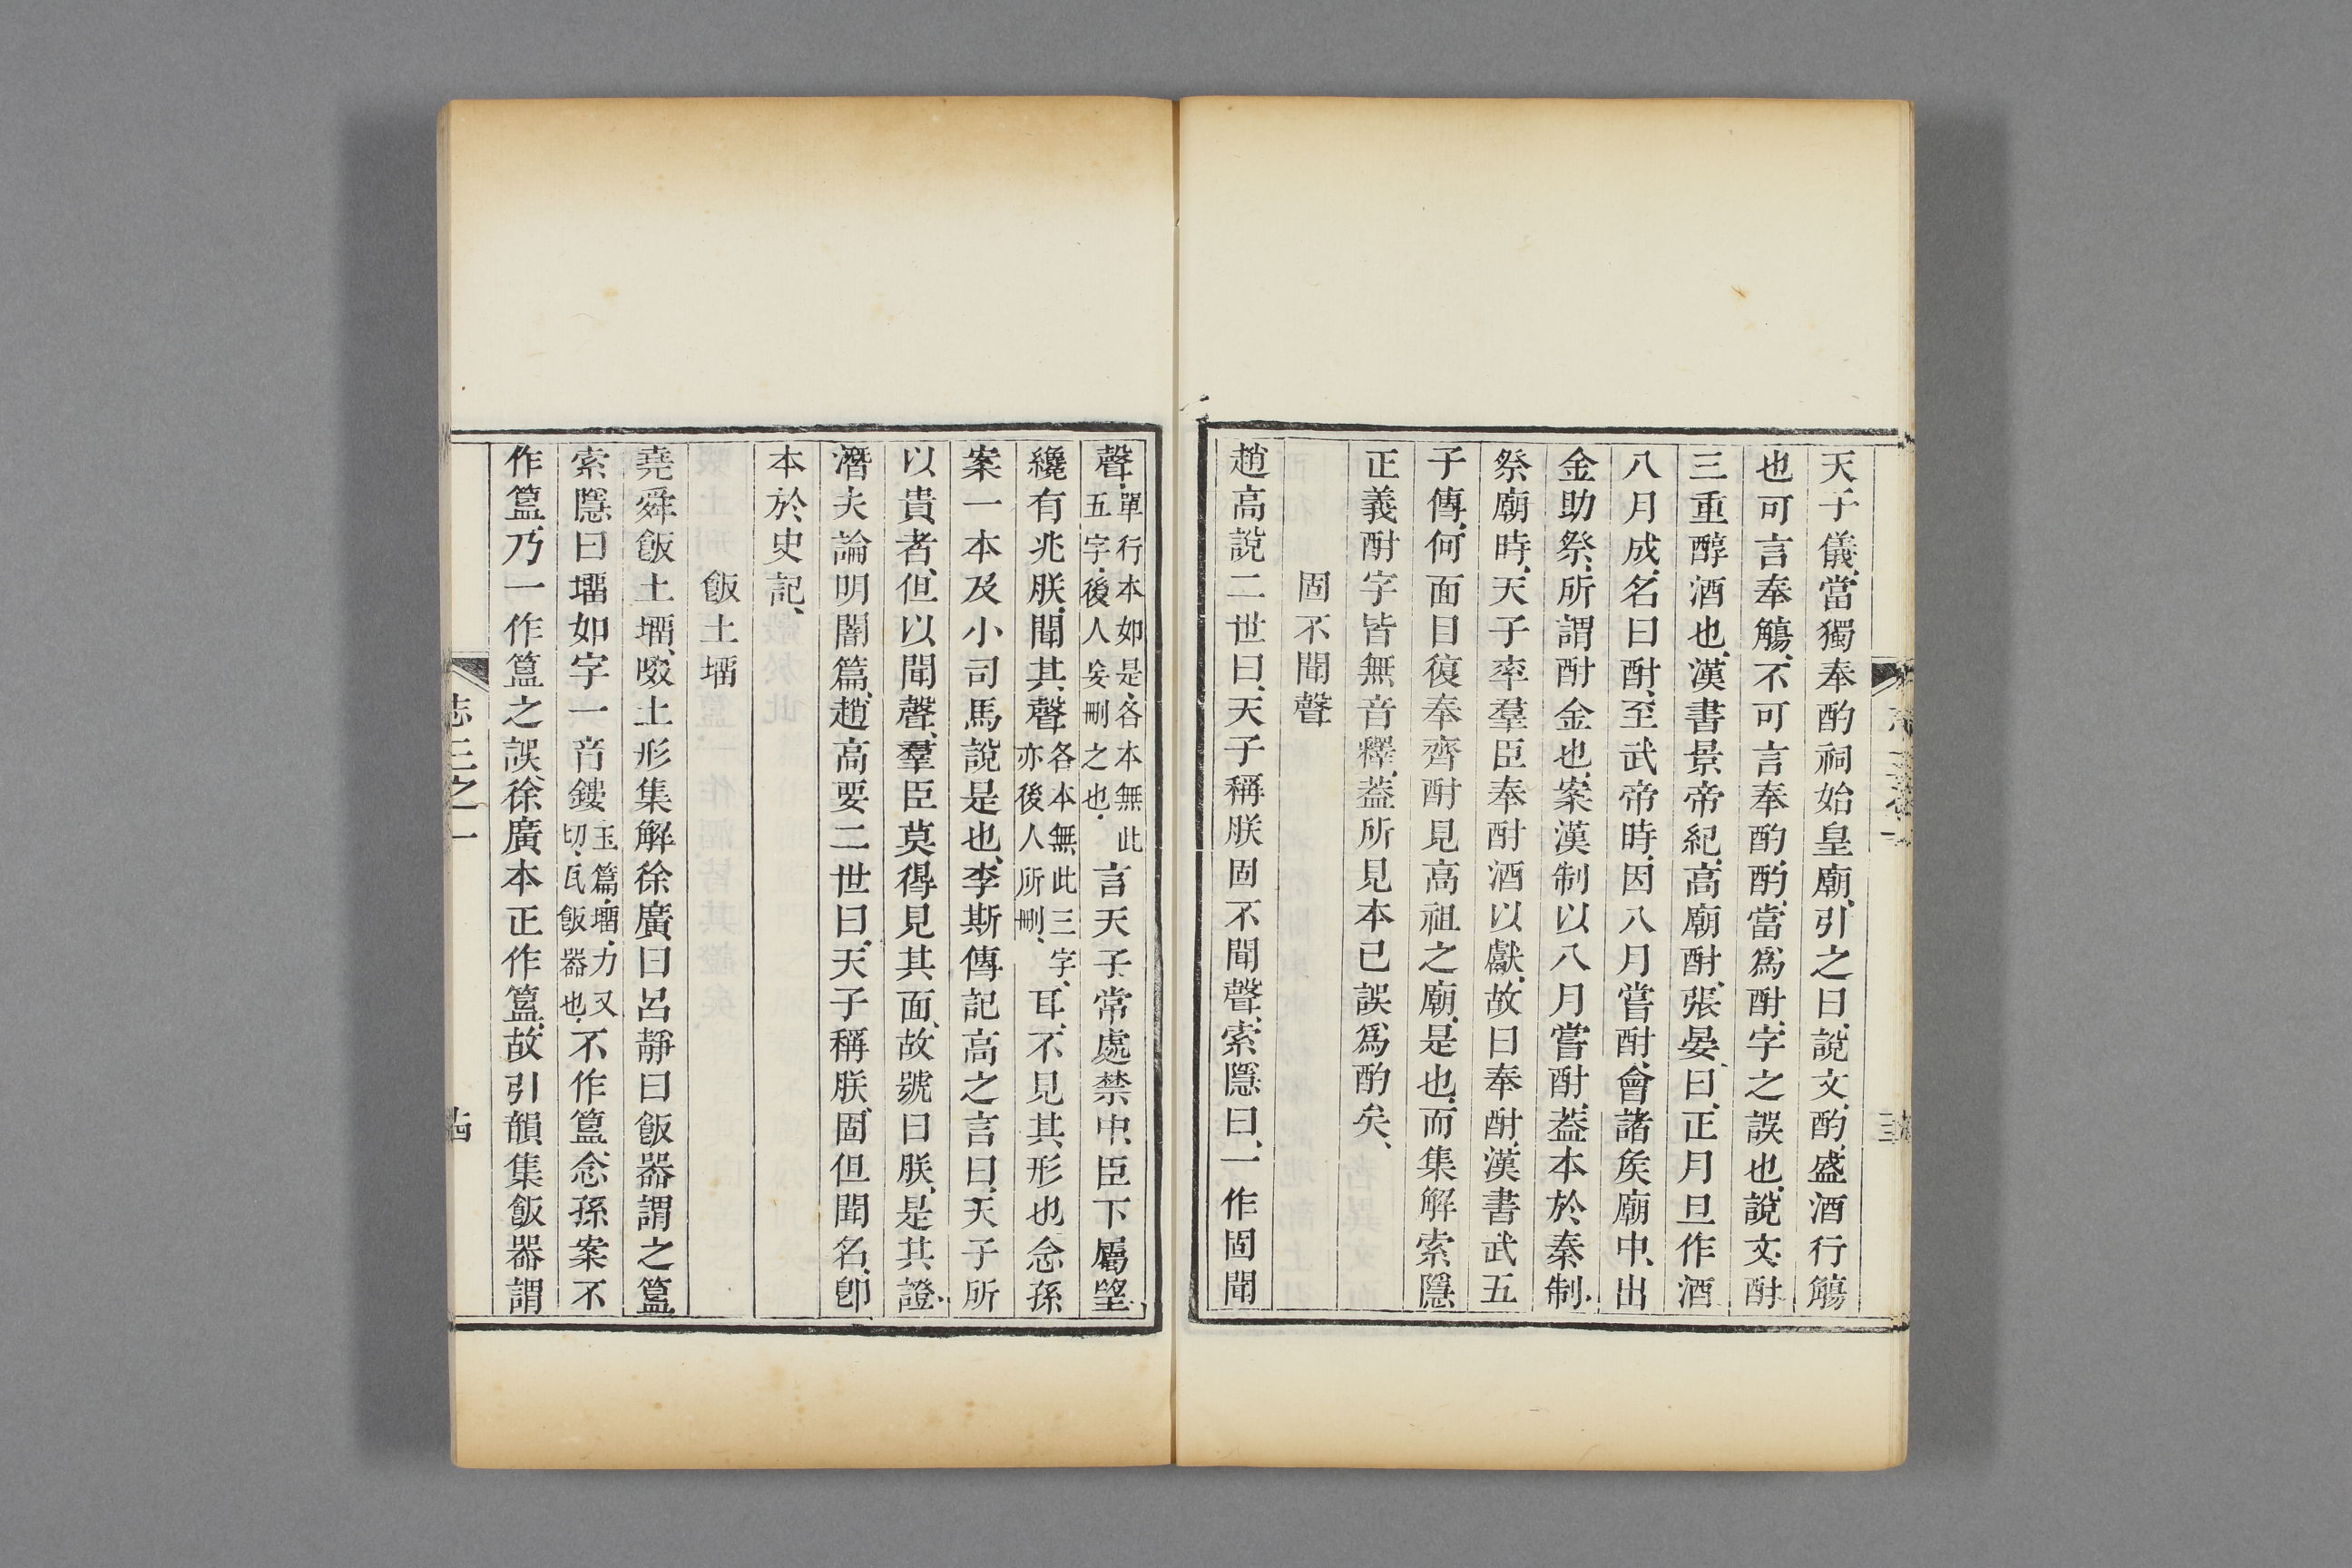 天子儀、當獨奉酌祠始皇廟、引之曰、說文、酌、盛酒行觴
也、可言奉觴、不可言奉酌、酌、當爲酎、字之誤也、說文、酎、
三重醇酒也、漢書景帝紀、高廟酎、張晏曰、正月旦作酒、
八月成、名曰酎、至武帝時、因八月嘗酎、會諸矦廟中、出
金助祭、所謂酎金也、案漢制以八月嘗酎、葢本於秦制、
祭廟時、天子率羣臣奉酎酒以獻、故曰奉酎、漢書武五
子傳、何面目復奉齊酎見高祖之廟、是也、而集解索隱
正義酎字皆無音釋、葢所見本已誤爲酌矣、
固不聞聲
趙高說二世曰、天子稱朕固不聞聲、索隱曰、一作固聞
聲、單行本如是、各本無此五字、後人妄刪之也、言天子常處禁中、臣下屬望、
纔有兆朕、聞其聲各本無此三字、亦後人所刪、耳、不見其形也、念孫
案一本及小司馬說是也、李斯傳記高之言曰、天子所
以貴者、但以聞聲、羣臣莫得見其面、故號曰朕、是其證、
潛夫論明闇篇、趙高要二世曰、天子稱朕、固但聞名、卽
本於史記、
飯土塯
堯舜飯土塯、啜土形、集解徐廣曰、呂靜曰飯器謂之簋
索隱曰塯如字、一音鏤玉篇、塯、力又切、瓦飯器也、不作簋、念孫案不
作簋、乃一作簋之誤、徐廣本正作簋、故引韻集飯器謂
志三之一